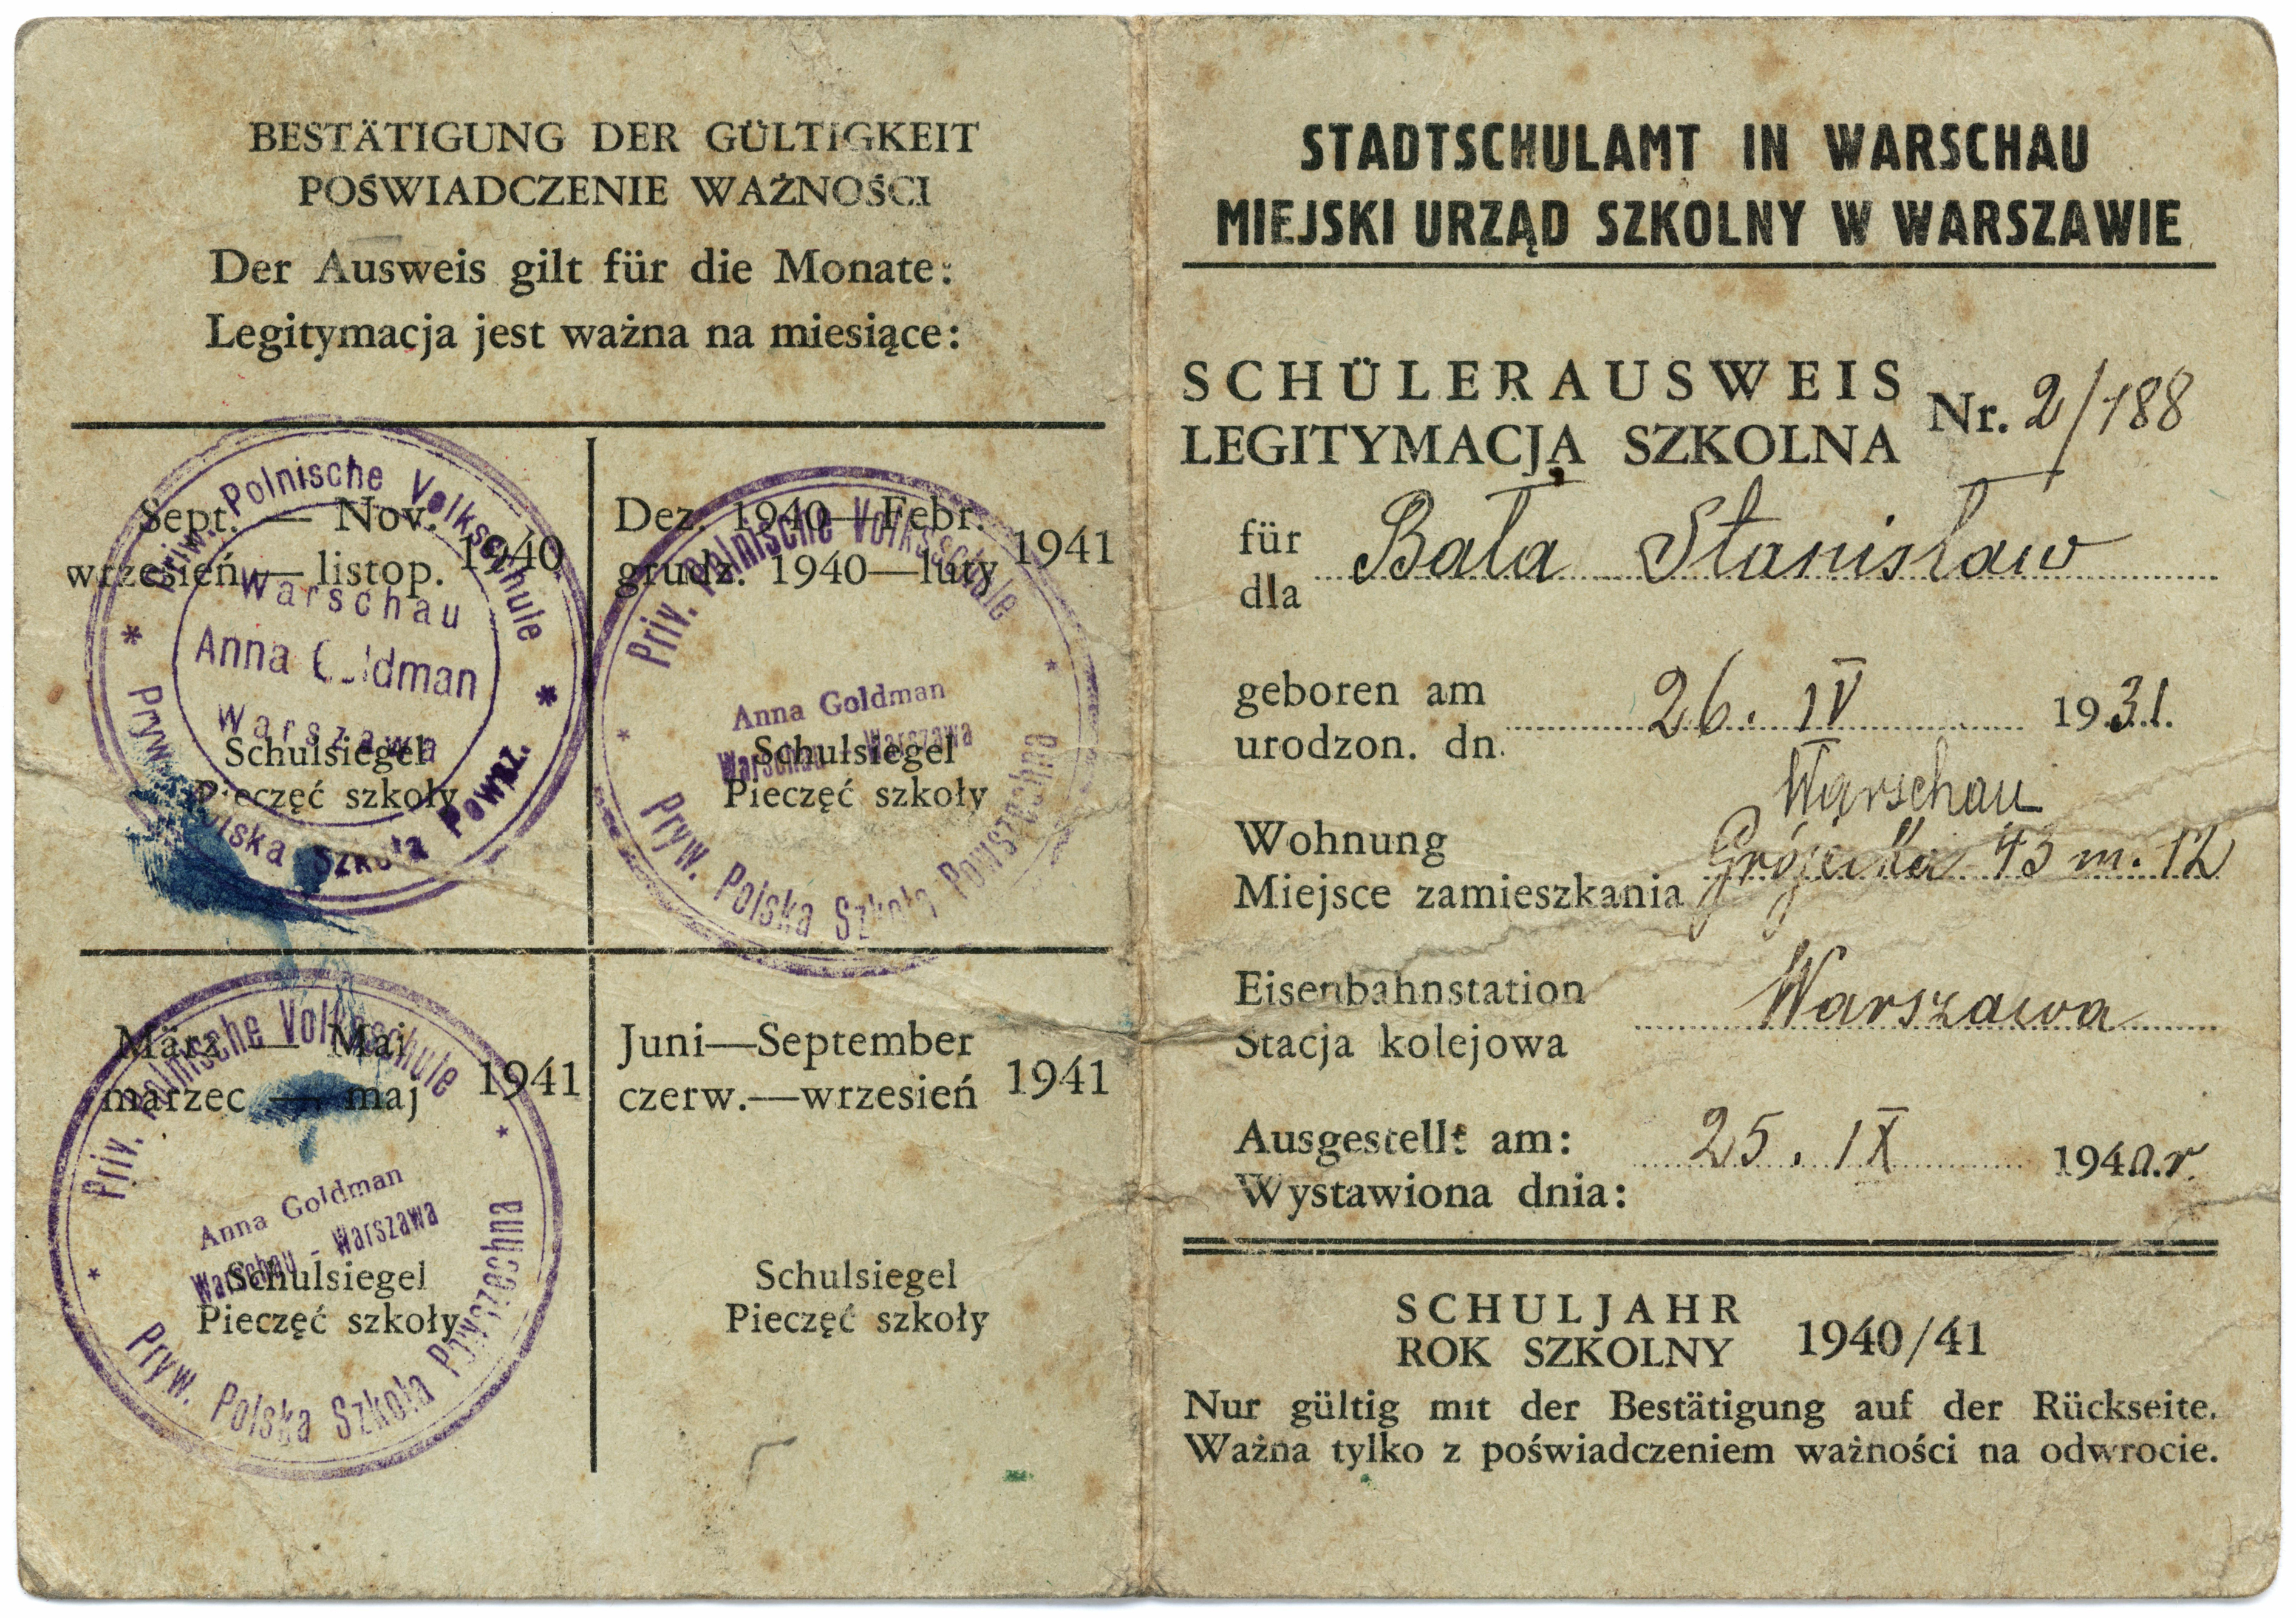 BESTÄTIGUNG DER GÜLTIGKEIT
POŚWIADCZENIE WAŻNOŚCI
Der Ausweis gilt für die Monate:
Legitymacja jest ważna na miesiące:
Sept. — Nov. 1940
wrzesień — listop.
Priw. Polnische Volksschule
Warschau
Anna Goldman
Warszawa
Schulsiegel
Pieczęć szkoły
Pryw. Polska Szkoła Powsz.
Dez. 1940—Febr. 1941
grudz. 1940—luty
Priv. Polnische Volksschule
Anna Goldman
Warschau - Warszawa
Schulsiegel
Pieczęć szkoły
Pryw. Polska Szkoła Powszechna
März — Mai 1941
marzec — maj
Priv. Polnische Volksschule
Anna Goldman
Warschau - Warszawa
Schulsiegel
Pieczęć szkoły
Pryw. Polska Szkoła Powszechna
Juni—September 1941
czerw.—wrzesień
Schulsiegel
Pieczęć szkoły
STADTSCHULAMT IN WARSCHAU
MIEJSKI URZĄD SZKOLNY W WARSZAWIE
SCHÜLERAUSWEIS Nr. 2/188
LEGITYMACJA SZKOLNA
für Bała Stanisław
dla
geboren am 26. IV 1931.
urodzon. dn.
Warschau
Wohnung Grójecka 43 m. 12
Miejsce zamieszkania
Eisenbahnstation Warszawa
Stacja kolejowa
Ausgestellt am: 25. IX 1940.r.
Wystawiona dnia:
SCHULJAHR 1940/41
ROK SZKOLNY
Nur gültig mit der Bestätigung auf der Rückseite.
Ważna tylko z poświadczeniem ważności na odwrocie.